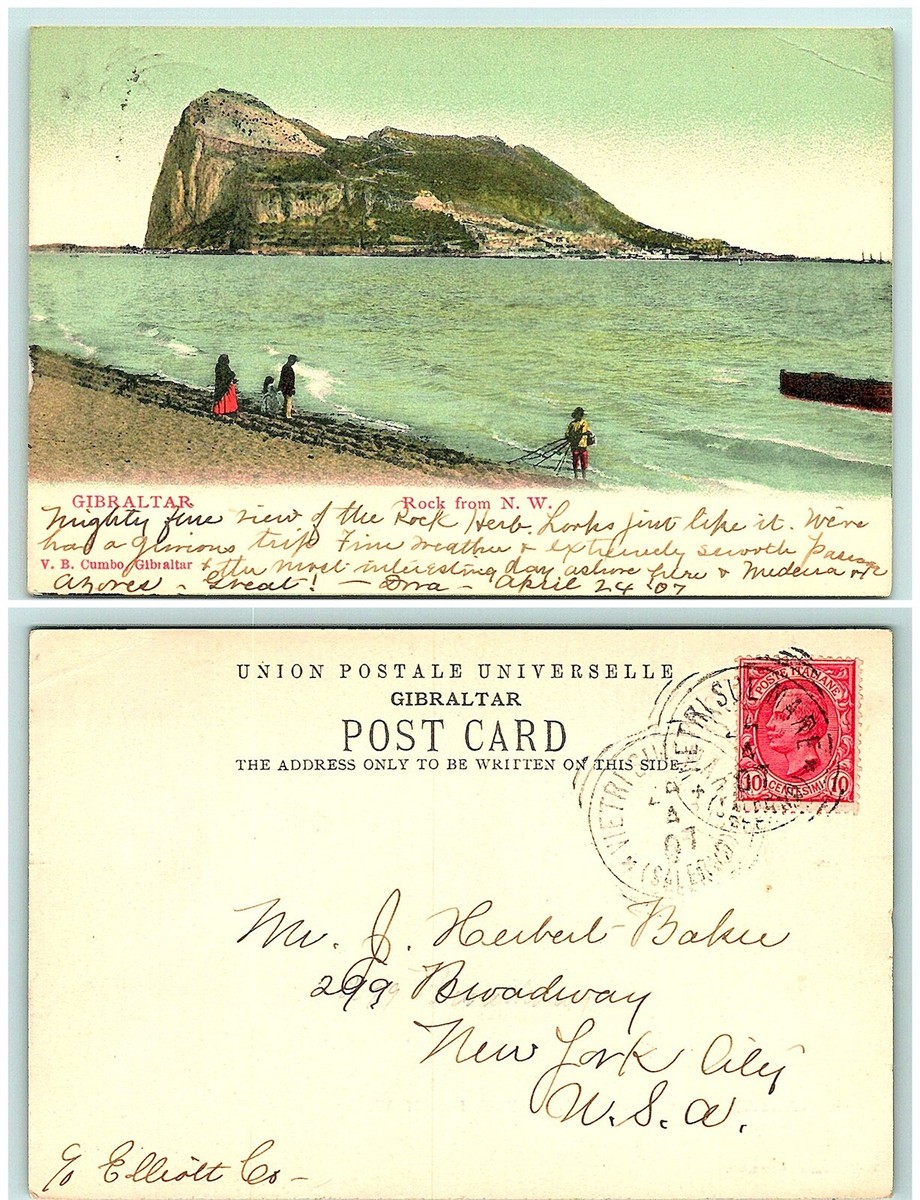 GIBRALTAR
Rock from N. W.
Mighty fine view of the Rock Herb. Looks just like it. We've
had a glorious trip Fine weather & extremely smooth passage
V. B. Cumbo, Gibraltar
& the most interesting day ashore here & Medeira &
Azores - Great! - April 24 '07
UNION POSTALE UNIVERSELLE
GIBRALTAR
POST CARD
THE ADDRESS ONLY TO BE WRITTEN ON THIS SIDE.
POSTE ITALIANE
10 CENTESIMI 10
VIETRI SUL MARE
VIETRI SUL
4
07
(SALERNO)
Mr. J. Herbert Baker
299 Broadway
New York City
U.S.A.
c/o Elliott Co -